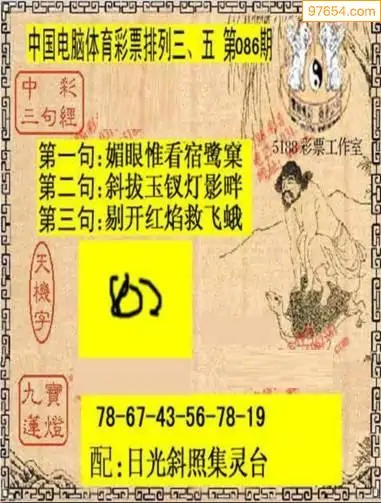 97654.com
中国电脑体育彩票排列三、五 第086期
中彩
三句經
5188彩票工作室
第一句:媚眼惟看宿鹭窠
第二句:斜拔玉钗灯影畔
第三句:剔开红焰救飞蛾
天機字
九寶
蓮燈
78-67-43-56-78-19
配:日光斜照集灵台